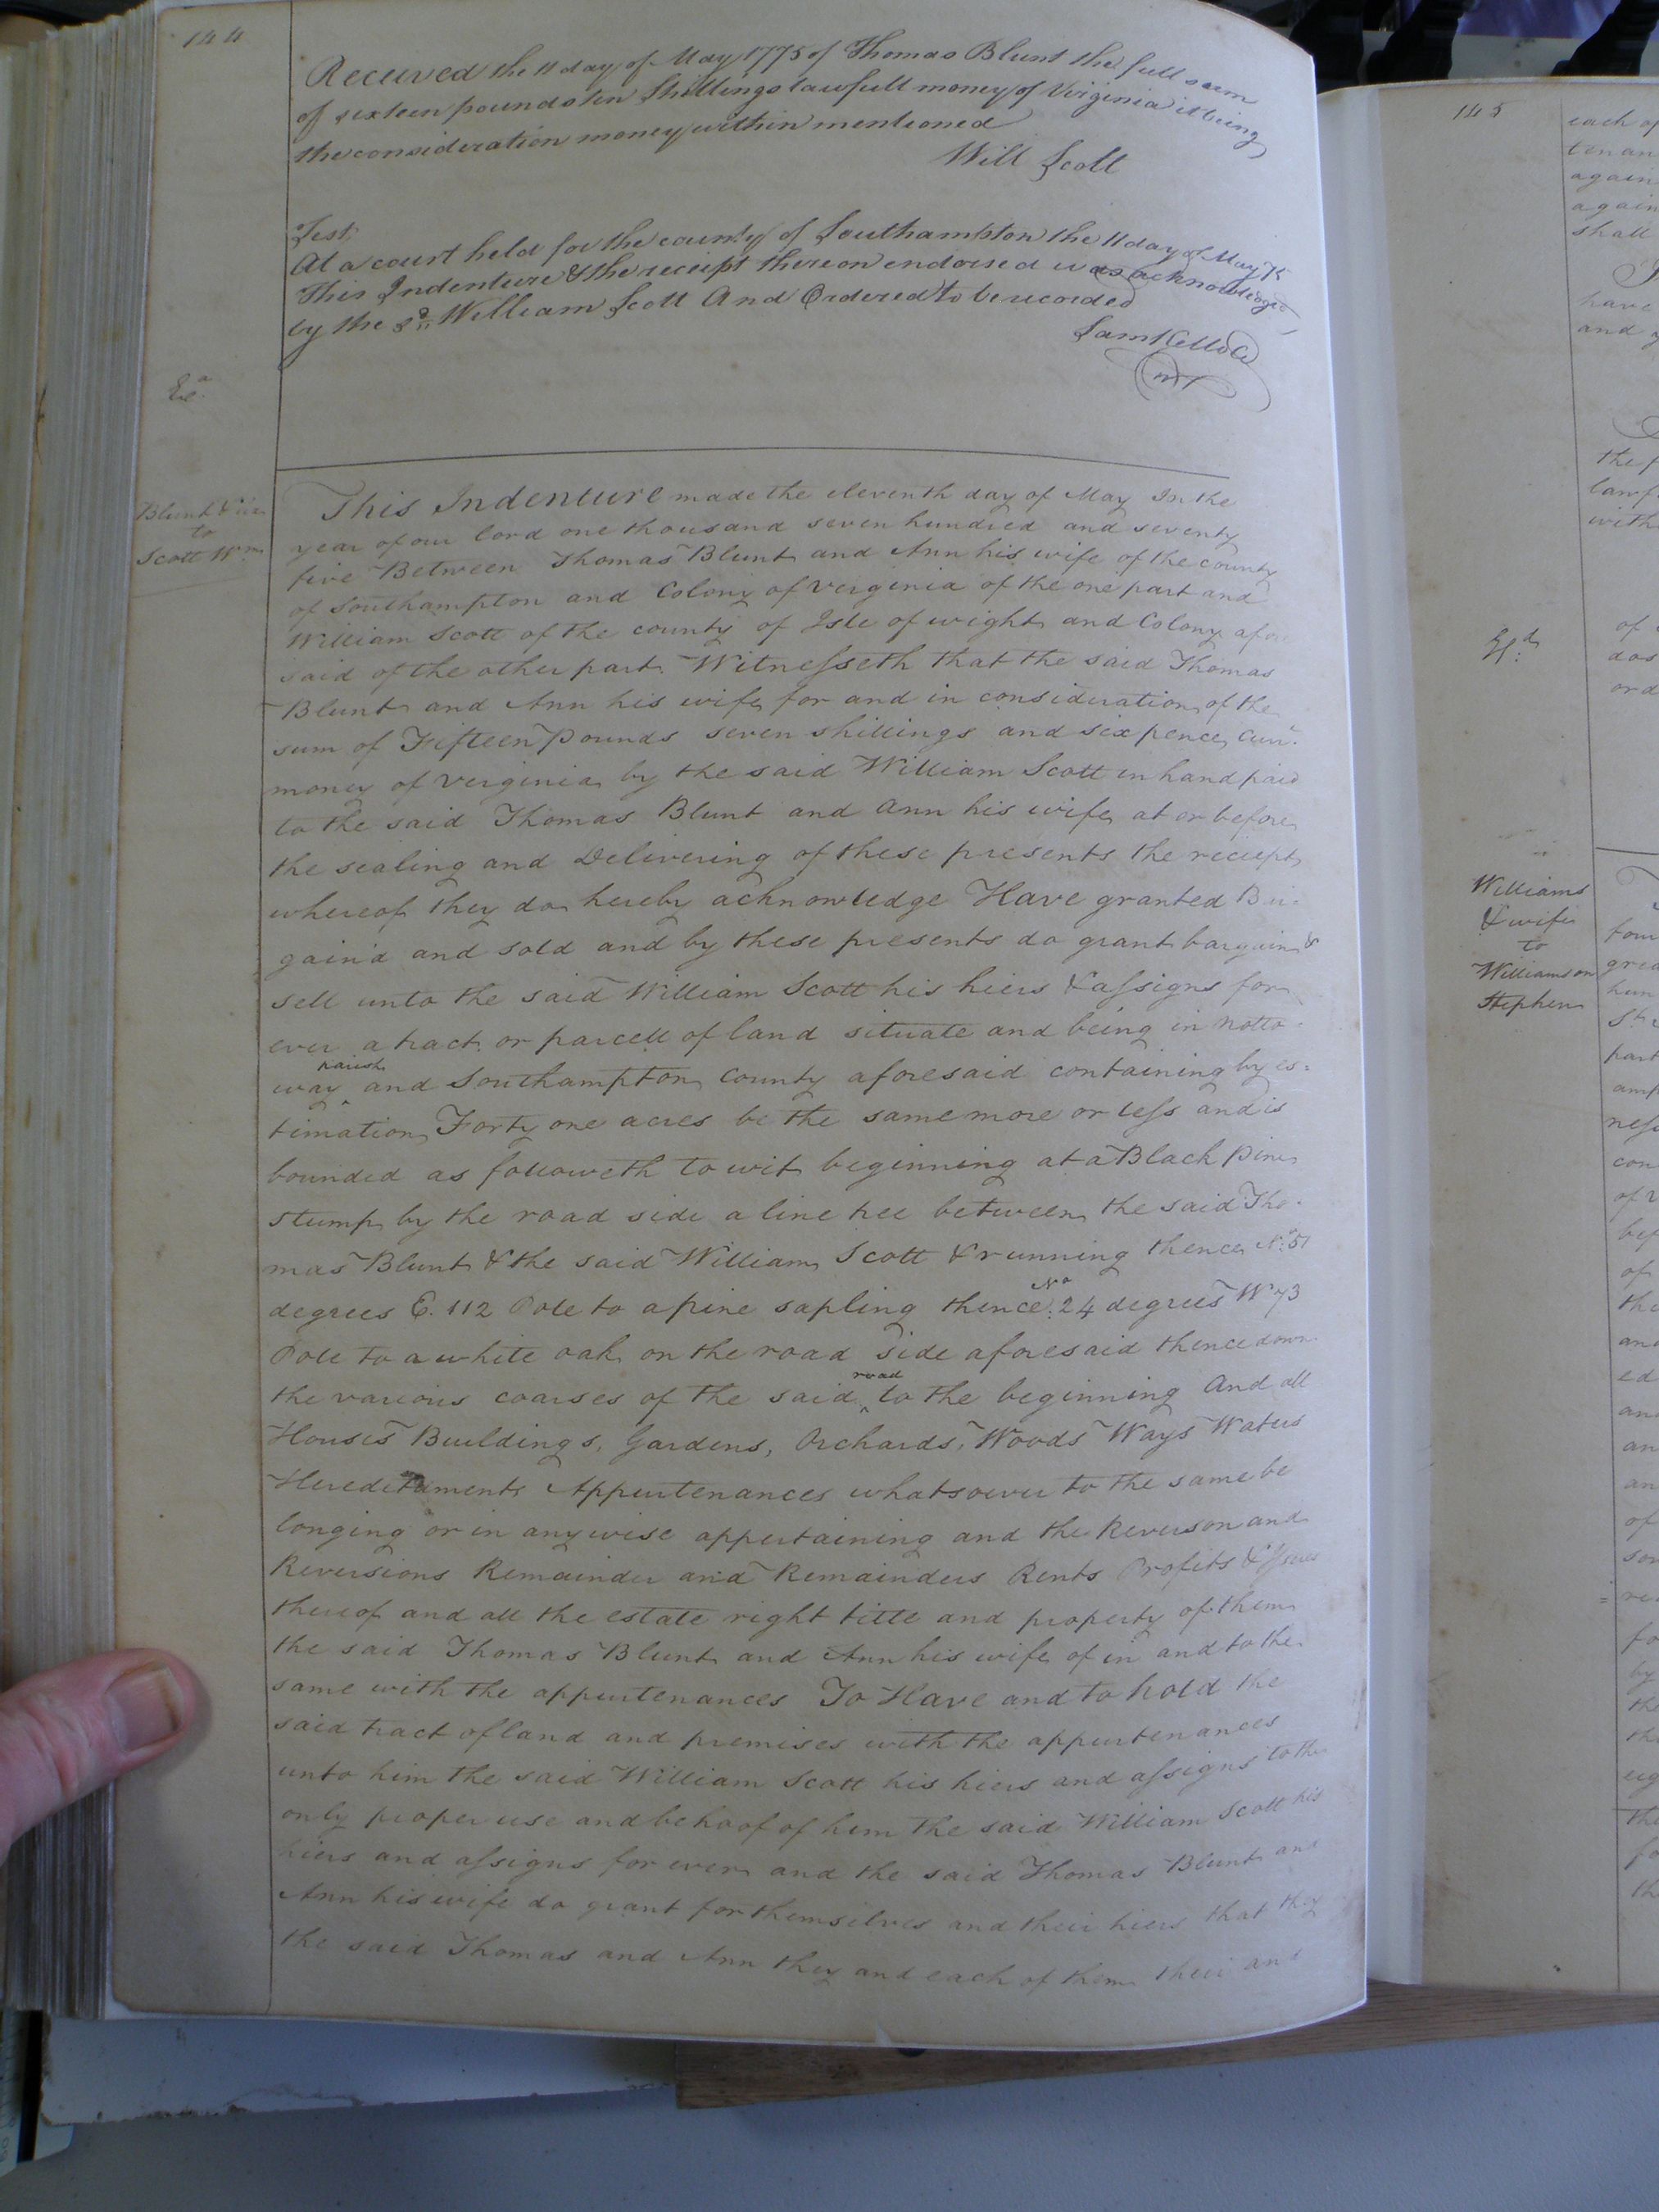 144
Received the 11 day of May 1775 of Thomas Blunt the full sum
of sixteen pounds ten Shillings lawfull money of Virginia it being
the consideration money within mentioned
Will Scott
Test,
At a court held for the county of Southampton the 11 day of May 75
This Indenture & the receipt thereon endorsed was acknowledged
by the sd. William Scott And Ordered to be recorded
Sam Kello C
Ex.a
Blunt & ux
to
Scott Wm.
This Indenture made the eleventh day of May In the
year of our lord one thousand seven hundred and seventy
five Between Thomas Blunt and Ann his wife of the county
of Southampton and Colony of Verginia of the one part and
William Scott of the county of Isle of wight and Colony afore
said of the other part Witnesseth that the said Thomas
Blunt and Ann his wife for and in consideration of the
sum of Fifteen Pounds seven shillings and six pence Curr.
money of Verginia by the said William Scott in hand paid
to the said Thomas Blunt and Ann his wife at or before
the sealing and Delivering of these presents the reciept
whereof they do hereby acknowledge Have granted Bar=
gain'd and sold and by these presents do grant bargain &
sell unto the said William Scott his hiers & assigns for
ever a tract or parcell of land situate and being in Notto=
way parish and Southampton County aforesaid containing by es=
timation Forty one acres be the same more or less and is
bounded as followeth to wit beginning at a Black Pine
stump by the road side a line tree between the said Tho=
mas Blunt & the said William Scott & running thence No. 51
degrees E. 112 Pole to a pine sapling thence No. 24 degrees W 73
Pole to a white oak on the road side aforesaid thence down
the various coarses of the said road to the beginning And all
Houses Buildings, Gardens, Orchards, Woods Ways Waters
Hereditaments Appurtenances whatsoever to the same be
longing or in any wise appertaining and the Reverson and
Reversions Remainder and Remainders Rents Profits & Issues
thereof and all the estate right title and property of them
the said Thomas Blunt and Ann his wife of in and to the
same with the appurtenances To Have and to hold the
said tract of land and premises with the appurtenances
unto him the said William Scott his hiers and assigns to the
only proper use and behoof of him the said William Scott his
hiers and assigns for ever and the said Thomas Blunt and
Ann his wife do grant for themselves and their hiers that they
the said Thomas and Ann they and each of them their and
145
each of
again
again
shall
have
and
the
with
of
Williams
& wife
to
Williamson
Stephen
part
of
the
and
ed
of
by
the